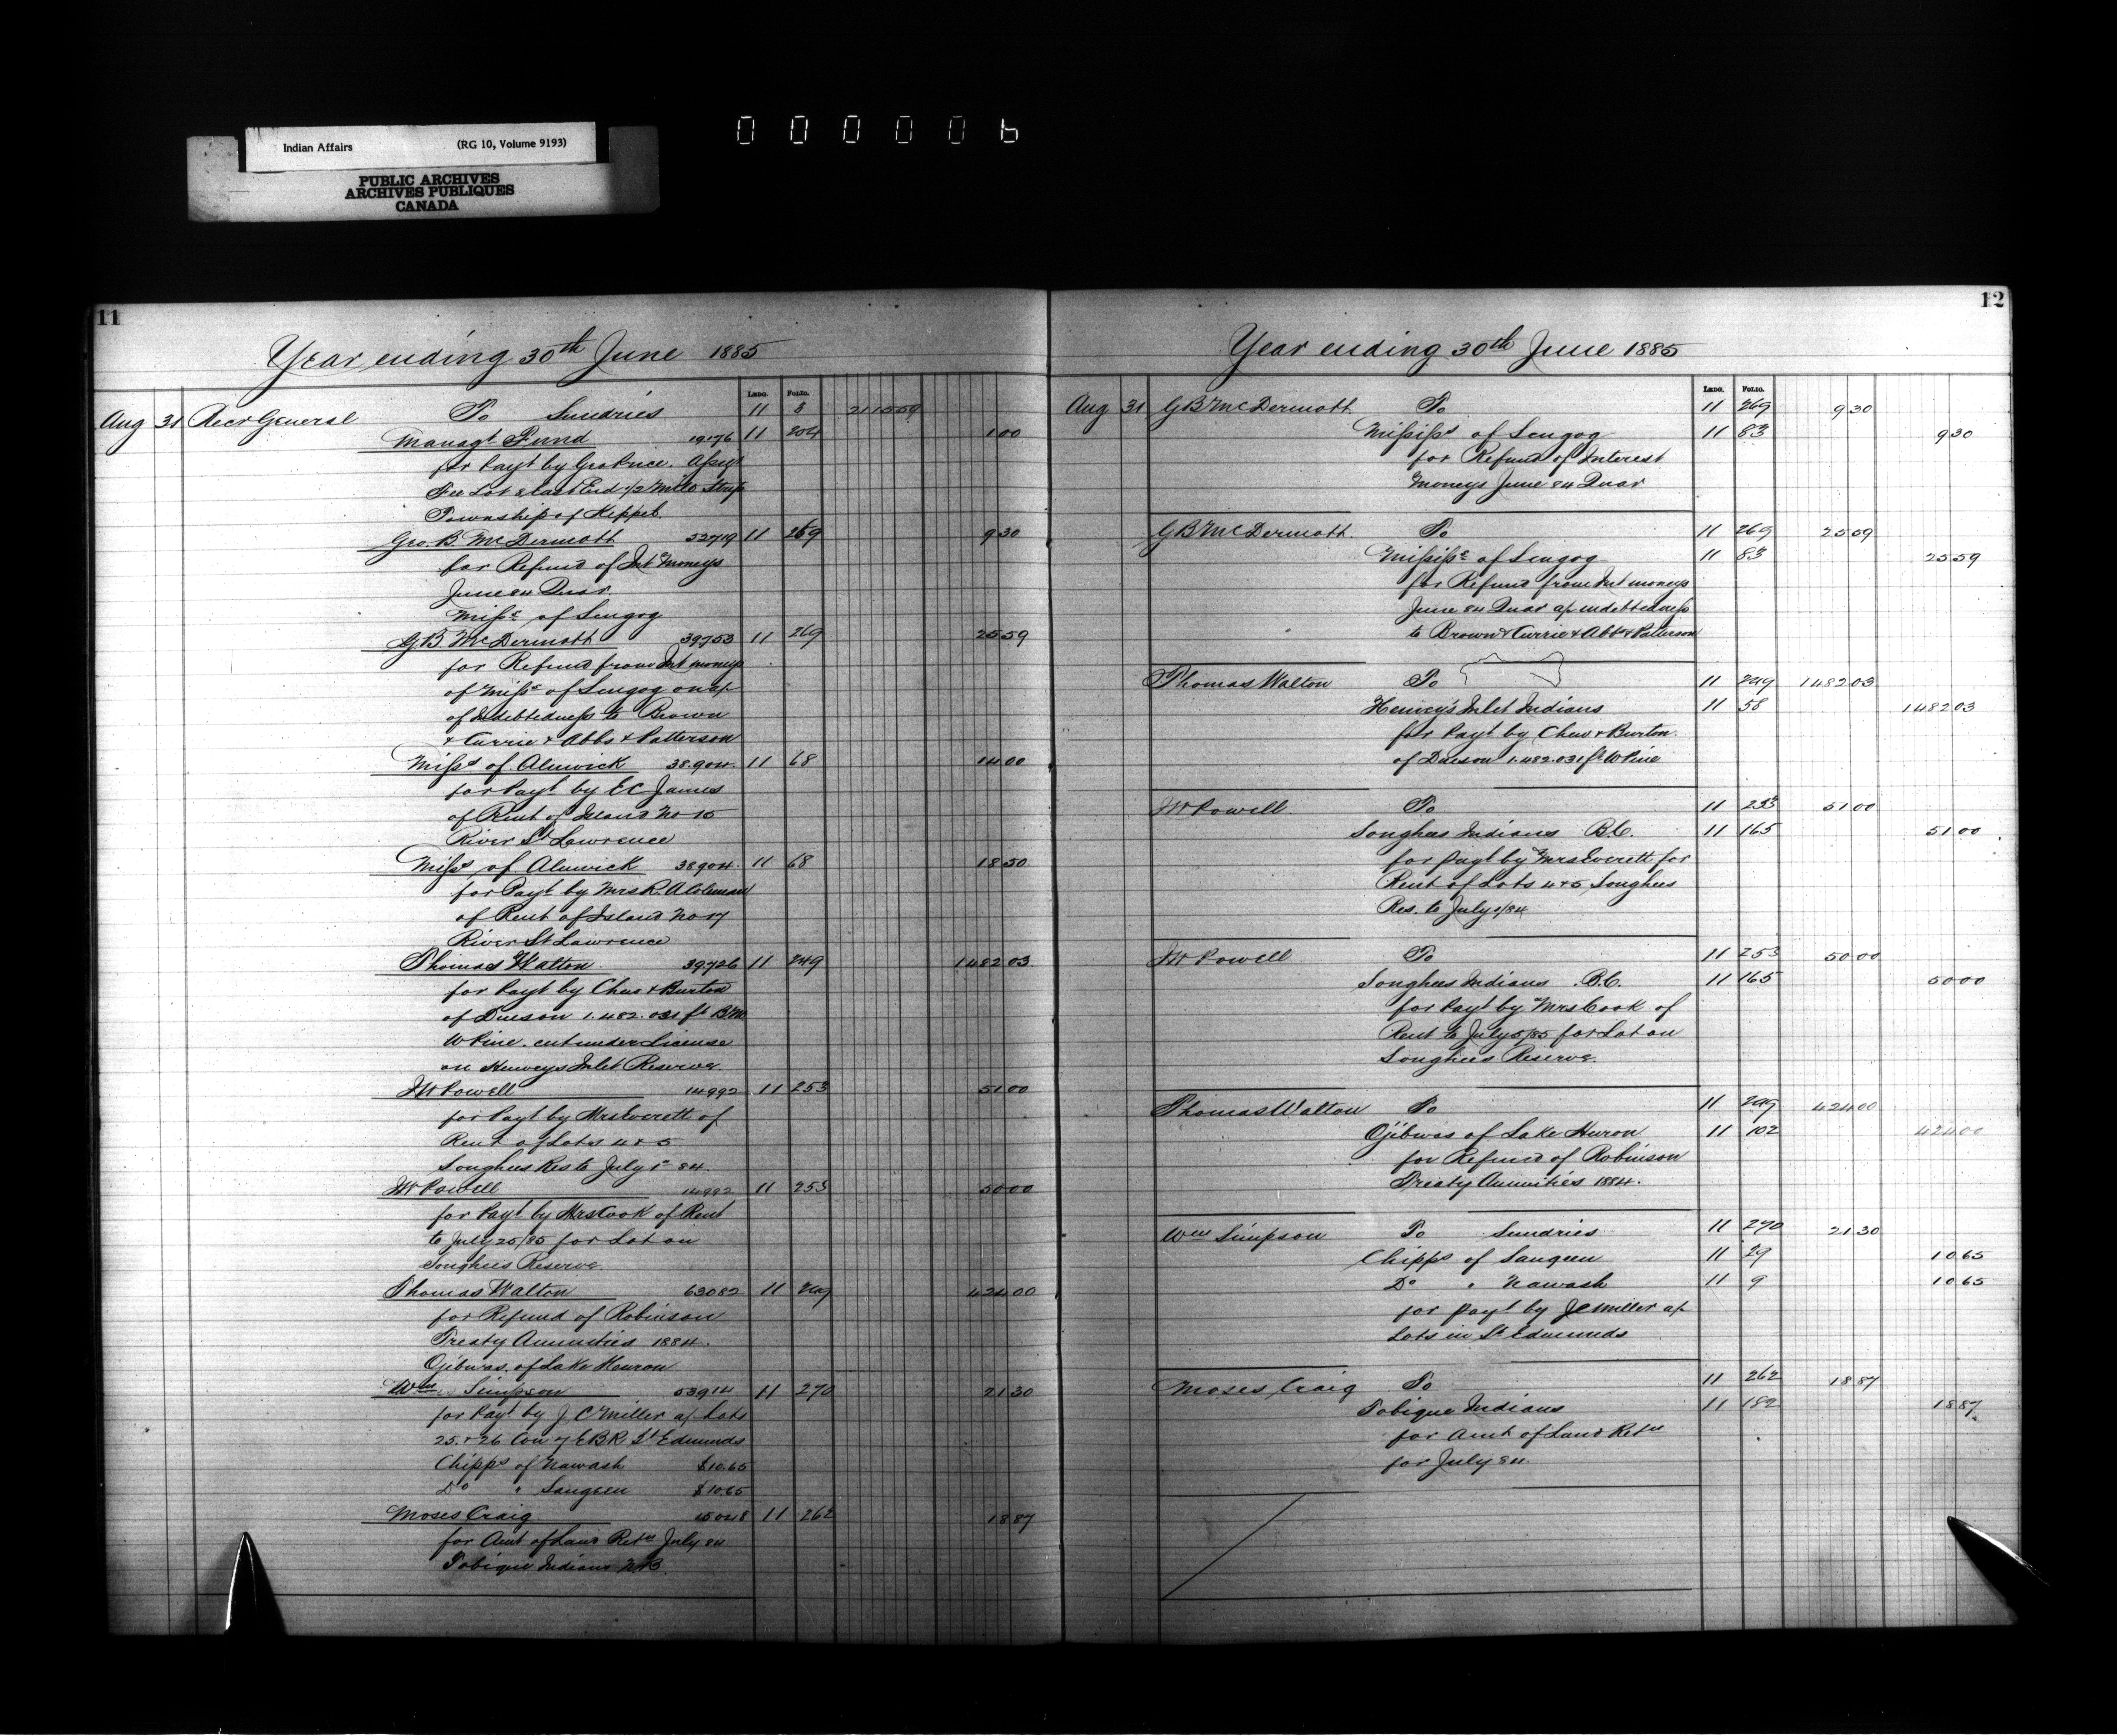 Indian Affairs (RG 10, Volume 9193)
PUBLIC ARCHIVES
ARCHIVES PUBLIQUES
CANADA
000006
11
Year ending 30th June 1885
Ledg. Folio.
Aug 31 Recr General To Sundries 11 8 2115 59
Managt Fund 19176 11 204 1 00
for Payt by Geo Price. Assigt
Fee Lot East End 1/2 Mile Strip
Township of Keppel
Geo. B. McDermott 52719 11 269 9 30
for Refund of Int Moneys
June 84 Quar
Missa of Scugog
G.B. McDermott 39753 11 269 25 59
for Refund from Int moneys
of Missa of Scugog on a/c
of Indebtedness to Brown
& Currie & Abbs & Patterson
Missa of Alnwick 38904 11 68 14 00
for Payt by E C James
of Rent of Island No 15
River St Lawrence
Missa of Alnwick 38904 11 68 18 50
for Payt by Mrs R. A Coleman
of Rent of Island No 17
River St Lawrence
Thomas Walton 39726 11 249 1482 03
for Payt by Chew & Burton
of Dues on 1.482.031 ft B.M
W Pine. cut under License
on Henveys Inlet Reserve
J W Powell 14992 11 253 51 00
for Payt by Mrs Everett of
Rent of Lots 4 & 5
Songhees Res to July 1st 84
J W Powell 14992 11 253 50 00
for Payt by Mrs Cook of Rent
to July 25/85 for Lot on
Songhees Reserve.
Thomas Walton 63082 11 249 424 00
for Refund of Robinson
Treaty Annuities 1884.
Ojibwas. of Lake Heuron
Wm Simpson 53914 11 270 21 30
for Payt by J. C Miller a/c Lots
25 & 26 Con 7 E B R St Edmunds
Chipps of Nawash $10.65
Do " Saugeen $10.65
Moses Craig 15048 11 262 18 87
for Amt of Land Retn July 84
Tobique Indians N.B.
12
Year ending 30th June 1885
Ledg. Folio.
Aug 31 G B McDermott To 11 269 9 30
Mississs of Scugog 11 83 9 30
for Refund of Interest
Moneys June 84 Quar
G B McDermott To 11 269 25 59
Mississs of Scugog 11 83 25 59
for Refund from Int moneys
June 84 Quar a/c indebtedness
to Brown & Currie & Abbs & Patterson
Thomas Walton To 11 249 1482 03
Henvey's Inlet Indians 11 58 1482 03
for Payt by Chew & Burton
of Dues on 1.482.031 ft W Pine
J W Powell To 11 253 51 00
Songhees Indians B.C. 11 165 51 00
for Payt by Mrs Everett for
Rent of Lots 4 & 5 Songhees
Res. to July 1/84
J W Powell To 11 253 50 00
Songhees Indians B.C. 11 165 50 00
for Payt by Mrs Cook of
Rent to July 25/85 for Lot on
Songhees Reserve.
Thomas Walton To 11 249 424 00
Ojibwas of Lake Huron 11 102 424 00
for Refund of Robinson
Treaty Annuities 1884.
Wm Simpson To Sundries 11 270 21 30
Chipps of Saugeen 11 29 10 65
Do " Nawash 11 9 10 65
for payt by J C Miller a/c
Lots in St Edmunds
Moses Craig To 11 262 18 87
Tobique Indians 11 182 18 87
for Amt of Land Retn
for July 84